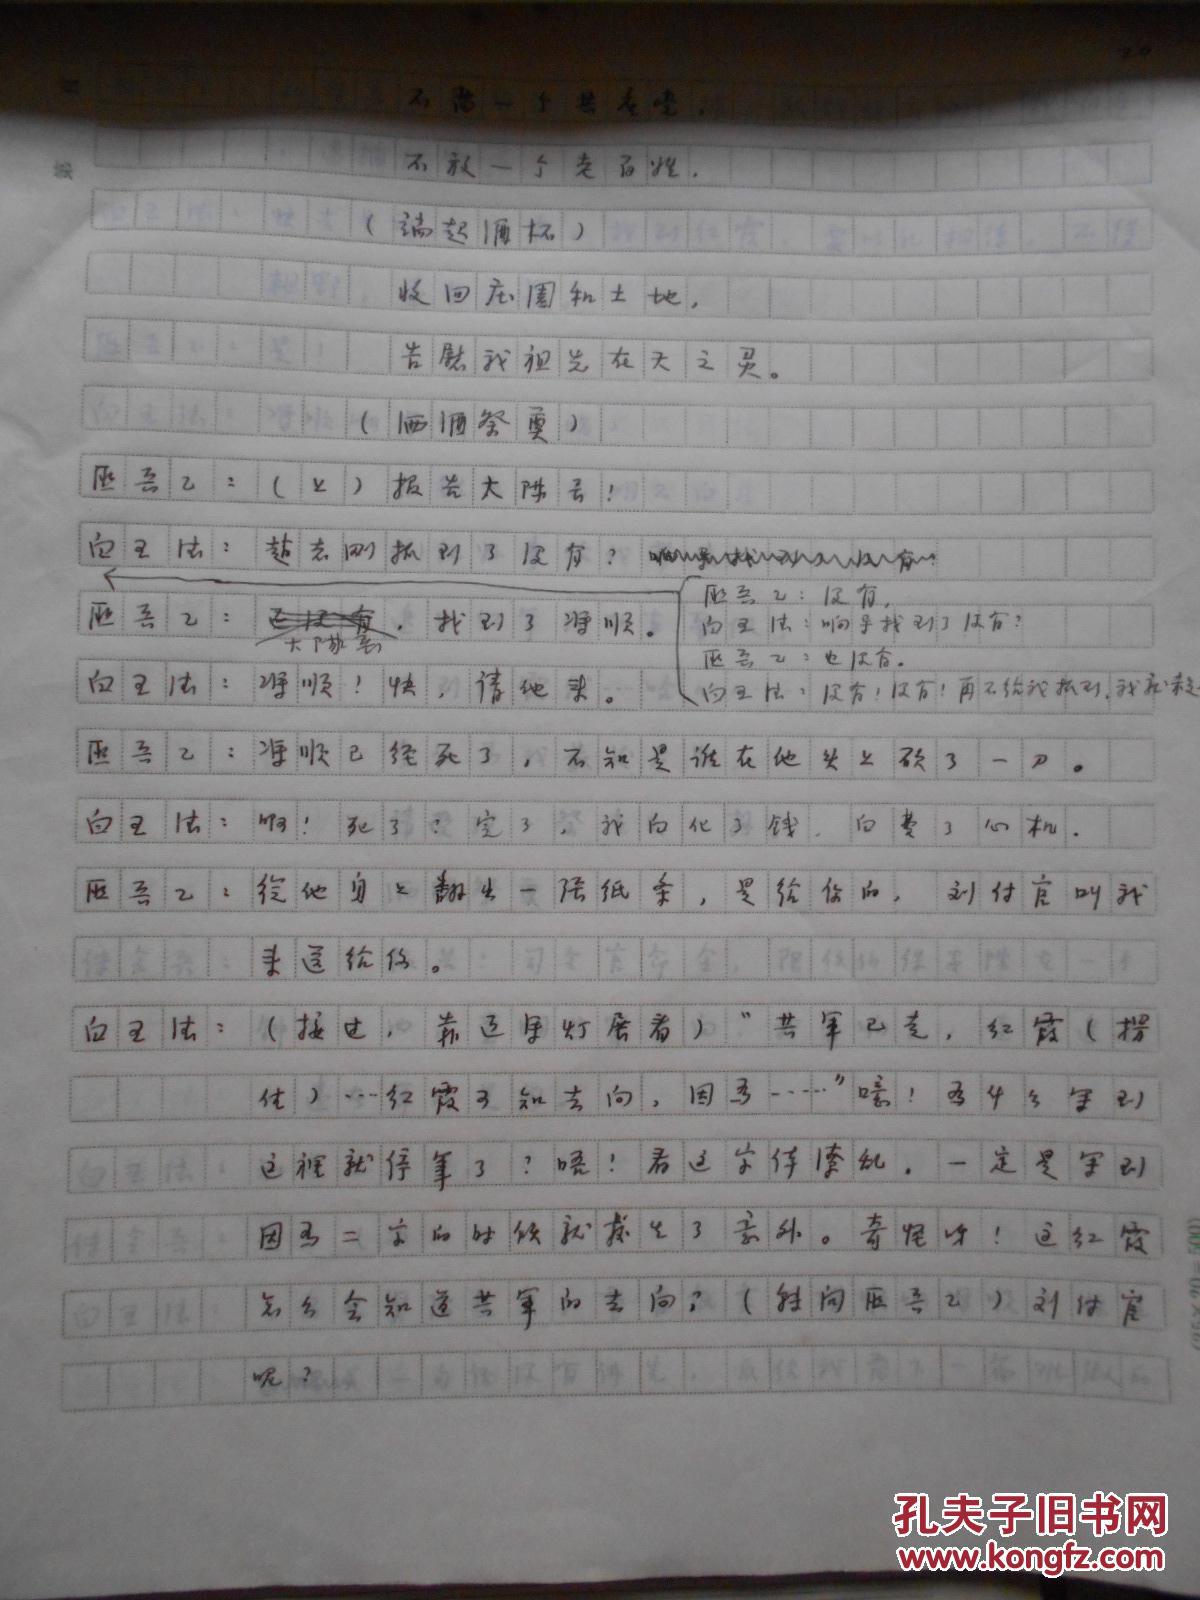 20
不
一个共产党，
不放一个老百姓，
（端起酒杯）
收回庄园和土地，
告慰我祖先在天之灵。
（洒酒祭奠）
匪兵乙：（上）报告大队长！
白玉法：赵志刚抓到了没有？
匪兵乙：没有，
白玉法：响导找到了没有？
匪兵乙：也没有。
白玉法：没有！没有！再不给我抓到，我就
匪兵乙：大队长，找到了冯顺。
白玉法：冯顺！快，请他来。
匪兵乙：冯顺已经死了，不知是谁在他头上砍了一刀。
白玉法：啊！死了？完了，我白化了钱，白费了心机．
匪兵乙：从他身上翻出一张纸条，是给你的，刘付官叫我
来送给你。
白玉法：（接过，靠近马灯展看）“共军已走，红霞（拐
住）…红霞不知去向，因为……”噫！为什么写到
这裡就停笔了？唔！看这字体潦乱．一定是写到
因为二字的时候就发生了意外。奇怪呀！这红霞
怎么会知道共军的去向？（转向匪兵乙）刘付官
呢？
孔夫子旧书网
www.kongfz.com